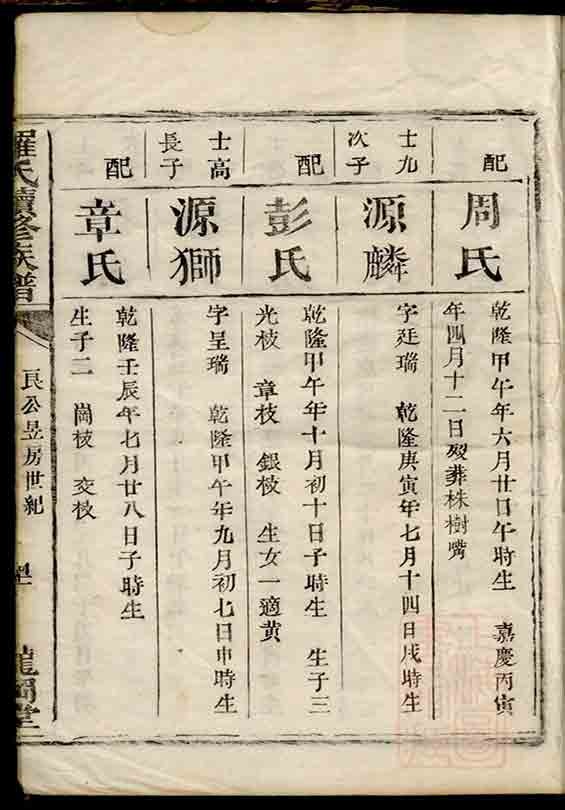 配
周氏
乾隆甲午年六月廿日午時生 嘉慶丙寅
年四月十二日歿葬株樹嘴
士九
次子
源麟
字廷瑞 乾隆庚寅年七月十四日戌時生
配
彭氏
乾隆甲午年十月初十日子時生 生子三
光枝 章枝 銀枝 生女一適黄
士高
長子
源獅
字呈瑞 乾隆甲午年九月初七日申時生
配
章氏
乾隆壬辰年七月廿八日子時生
生子二 崗枝 交枝
羅氏續修族譜
良公昱房世紀